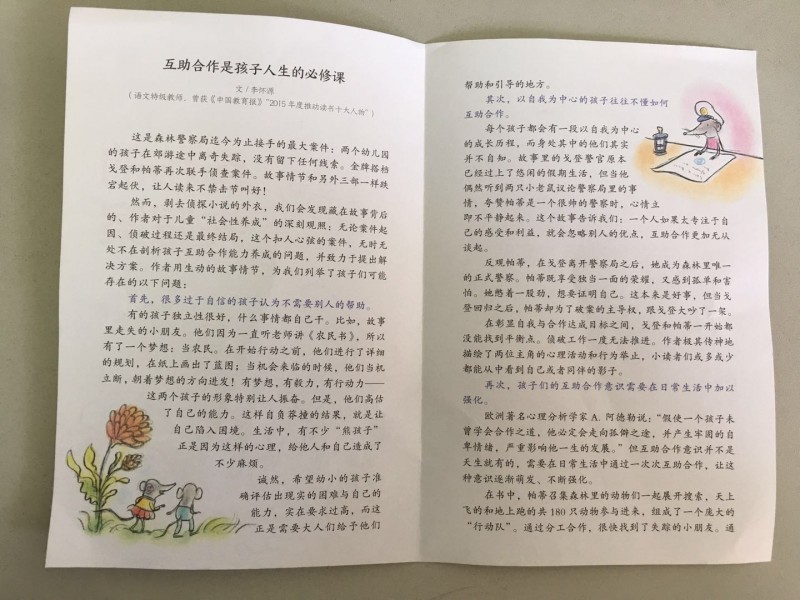 互助合作是孩子人生的必修课
文/李怀源
（语文特级教师、曾获《中国教育报》“2015年度推动读书十大人物”）
这是森林警察局迄今为止接手的最大案件：两个幼儿园
的孩子在郊游途中离奇失踪，没有留下任何线索。金牌搭档
戈登和帕蒂再次联手侦查案件。故事情节和另外三部一样跌
宕起伏，让人读来不禁击节叫好！
然而，剥去侦探小说的外衣，我们会发现藏在故事背后
的、作者对于儿童“社会性养成”的深刻观照：无论案件起
因、侦破过程还是最终结局，这个扣人心弦的案件，无时无
处不在剖析孩子互助合作能力养成的问题，并致力于提出解
决方案。作者用生动的故事情节，为我们列举了孩子们可能
存在的以下问题：
首先，很多过于自信的孩子认为不需要别人的帮助。
有的孩子独立性很好，什么事情都自己干。比如，故事
里走失的小朋友。他们因为一直听老师讲《农民书》，所以
有了一个梦想：当农民。在开始行动之前，他们进行了详细
的规划，在纸上画出了蓝图；当机会来临的时候，他们当机
立断，朝着梦想的方向进发！有梦想，有毅力，有行动力——
这两个孩子的形象特别让人振奋。但是，他们高估
了自己的能力。这样自负莽撞的结果，就是让
自己陷入困境。生活中，有不少“熊孩子”
正是因为这样的心理，给他人和自己造成了
不少麻烦。
诚然，希望幼小的孩子准
确评估出现实的困难与自己的
能力，实在要求过高，而这
正是需要大人们给予他们
帮助和引导的地方。
其次，以自我为中心的孩子往往不懂如何
互助合作。
每个孩子都会有一段以自我为中心
的成长历程，而身处其中的他们其实
并不自知。故事里的戈登警官原本
已经过上了悠闲的假期生活，但当他
偶然听到两只小老鼠议论警察局里的事
情，夸赞帕蒂是一个很帅的警察时，心情立
即不平静起来。这个故事告诉我们：一个人如果太专注于自
己的感受和利益，就会忽略别人的优点，互助合作更加无从
谈起。
反观帕蒂，在戈登离开警察局之后，她成为森林里唯一
的正式警察。帕蒂既享受独当一面的荣耀，又感到孤单和害
怕。她憋着一股劲，想要证明自己。这本来是好事，但当戈
登回归之后，帕蒂却为了破案的主导权，跟戈登大吵了一架。
在彰显自我与合作达成目标之间，戈登和帕蒂一开始都
没能找到平衡点。侦破工作一度无法推进。作者极其传神地
描绘了两位主角的心理活动和行为举止，小读者们或多或少
都能从中看到自己或者同伴的影子。
再次，孩子们的互助合作意识需要在日常生活中加以
强化。
欧洲著名心理分析学家 A. 阿德勒说：“假使一个孩子未
曾学会合作之道，他必定会走向孤僻之途，并产生牢固的自
卑情绪，严重影响他一生的发展。”但互助合作意识并不是
天生就有的，需要在日常生活中通过一次次互助合作，让这
种意识逐渐萌发、不断强化。
在书中，帕蒂召集森林里的动物们一起展开搜索，天上
飞的和地上跑的共 180 只动物参与进来，组成了一个庞大的
“行动队”。通过分工合作，很快找到了失踪的小朋友。通